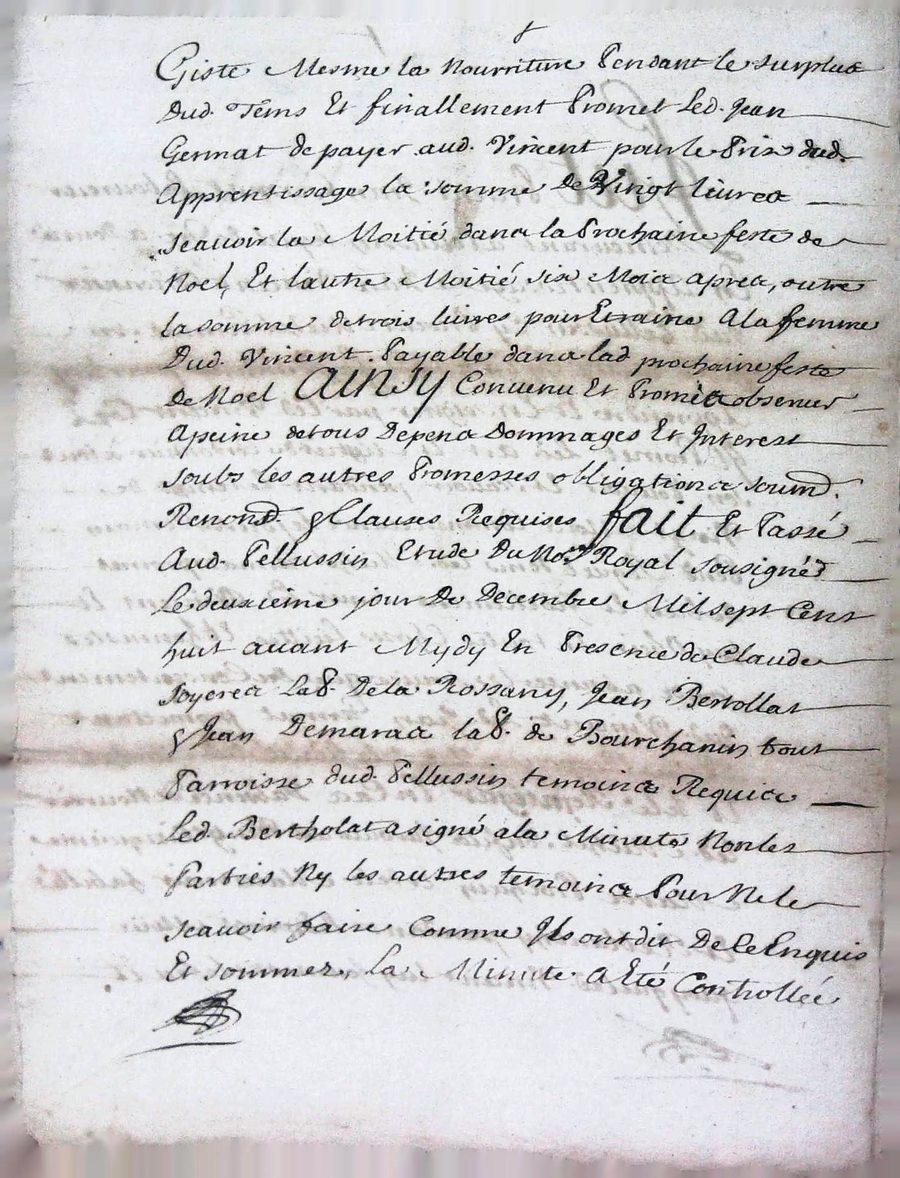 Giste Mesme la nourriture Pendant le surplus
Dud. Tems Et finallement Promet Led. Jean
Germat de payer aud. Vincent pour le Prix dud.
Apprentissage la somme De Vingt livres
scauoir la Moitié dans la Prochaine feste de
Noel, Et lautre Moitié six Mois apres, outre
la somme de trois liures pour Etraine A la femme
Dud. Vincent. Payable dans lad prochaine feste
de Noel Ainsy Conuenu Et Promis obseruer
Apeine de tous Depens Dommages Et Interest
soubs les autres Promesses obligations soumd.
Renond. & Clauses Requises fait Et Passé
Aud. Pellussin Etude Du Nore. Royal sousigné
Le deuxieme jour De Decembre Mil sept Cent
huit auant Mydy En Presence de Claude
soyeres La P. De la Rossany, Jean Bertollat
& Jean Demaras la P. de Bourchanin tout
Parroisse dud. Pellussin temoins Requis
Led. Bertholat a signé a la Minute Non les
Parties Ny les autres temoins Pour Ne le
scauoir faire Comme Ils ont dit De Ce Enquis
Et sommez, La Minute A Eté Controllée